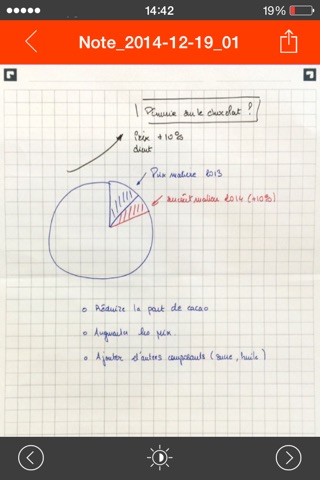 14:42
19%
Note_2014-12-19_01
Pénurie sur le chocolat ?
Prix +10%
Prix matière 2013
matière 2014 (+10%)
Réduire la part de cacao
Augmenter les prix
Ajouter d'autres composants (sucre, huile)